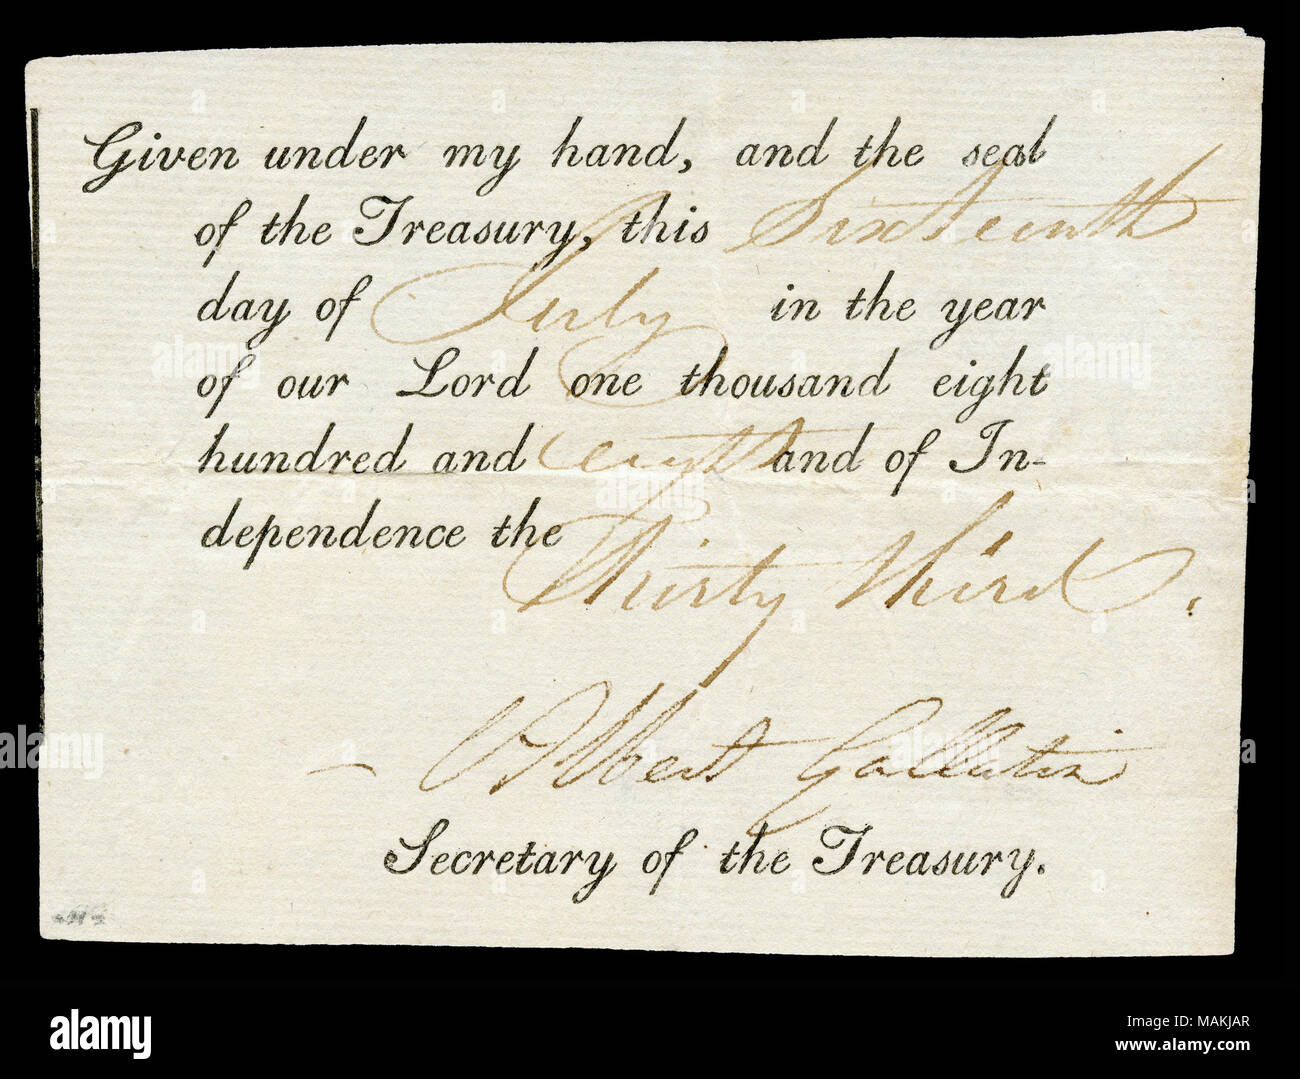 Given under my hand, and the seal
of the Treasury, this Sixteenth
day of July in the year
of our Lord one thousand eight
hundred and eight and of In-
dependence the Thirty third.
Albert Gallatin
Secretary of the Treasury.
alamy
Image ID: MAKJAR
www.alamy.com